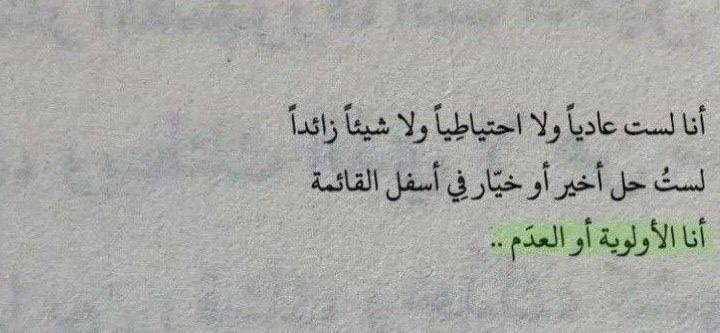 أنا لست عادياً ولا احتياطِياً ولا شيئاً زائداً
لستُ حل أخير أو خيّار فِي أسفل القائمة
أنا الأولوية أو العدَم ..